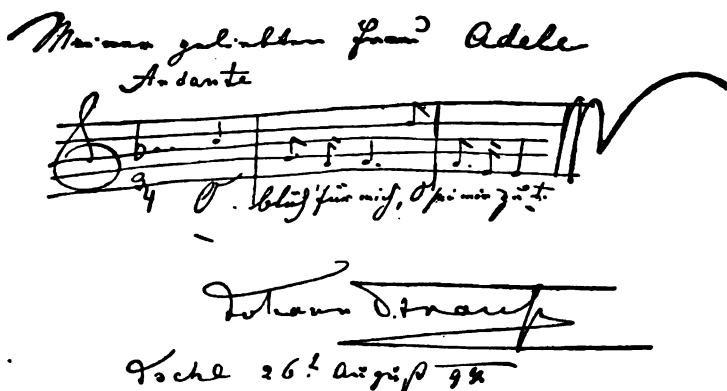 Meiner geliebten Frau Adele
Andante
3/4 O blüh' für mich, O sei mir gut.
Johann Strauß
Ischl 26t August